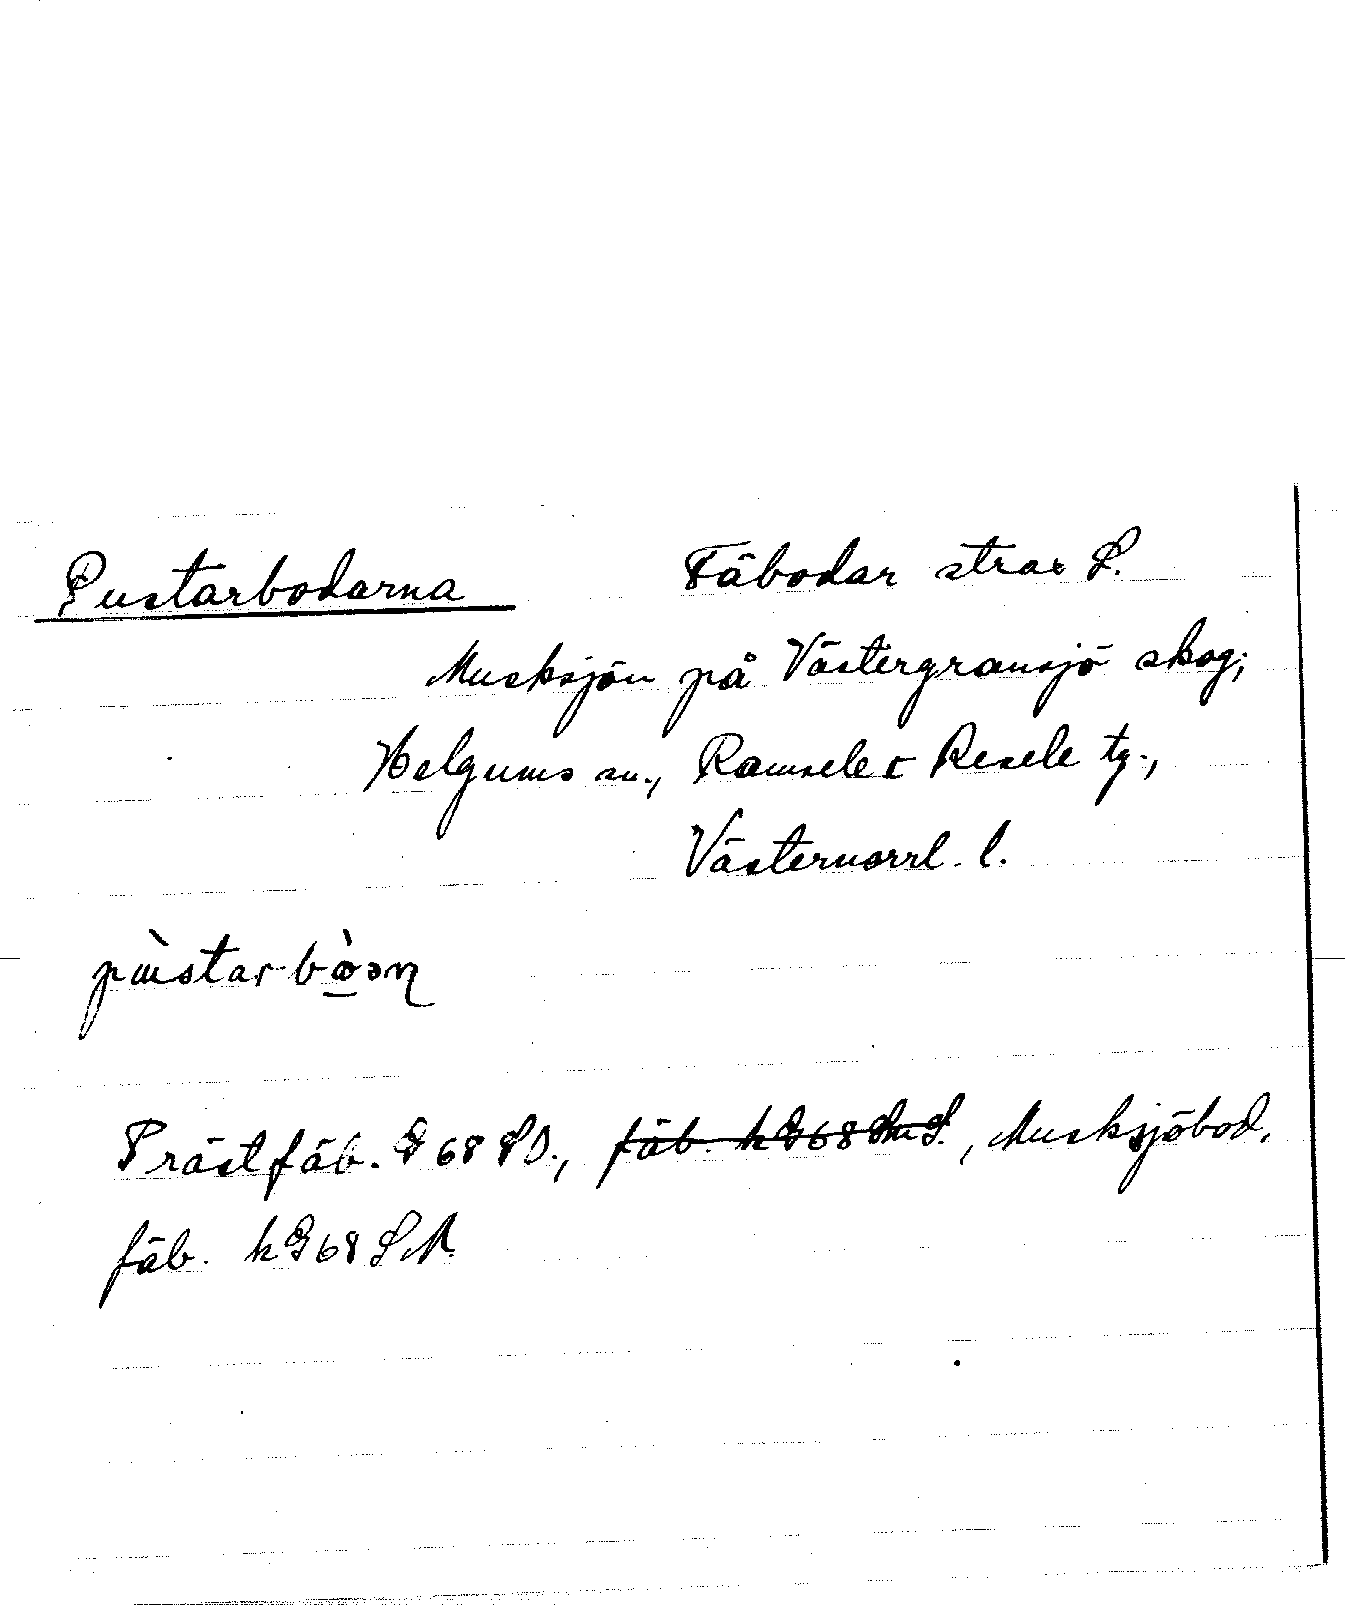 Pustarbodarna Fäbodar strax S.
Musksjön på Västergransjö skog;
Helgums sn., Ramsele o Resele tg.,
Västernorrl. l.
pùstarbòən
Prästfäb. G 68 SO., fäb. kG68 S., Musksjöbod.
fäb. kG68 SA